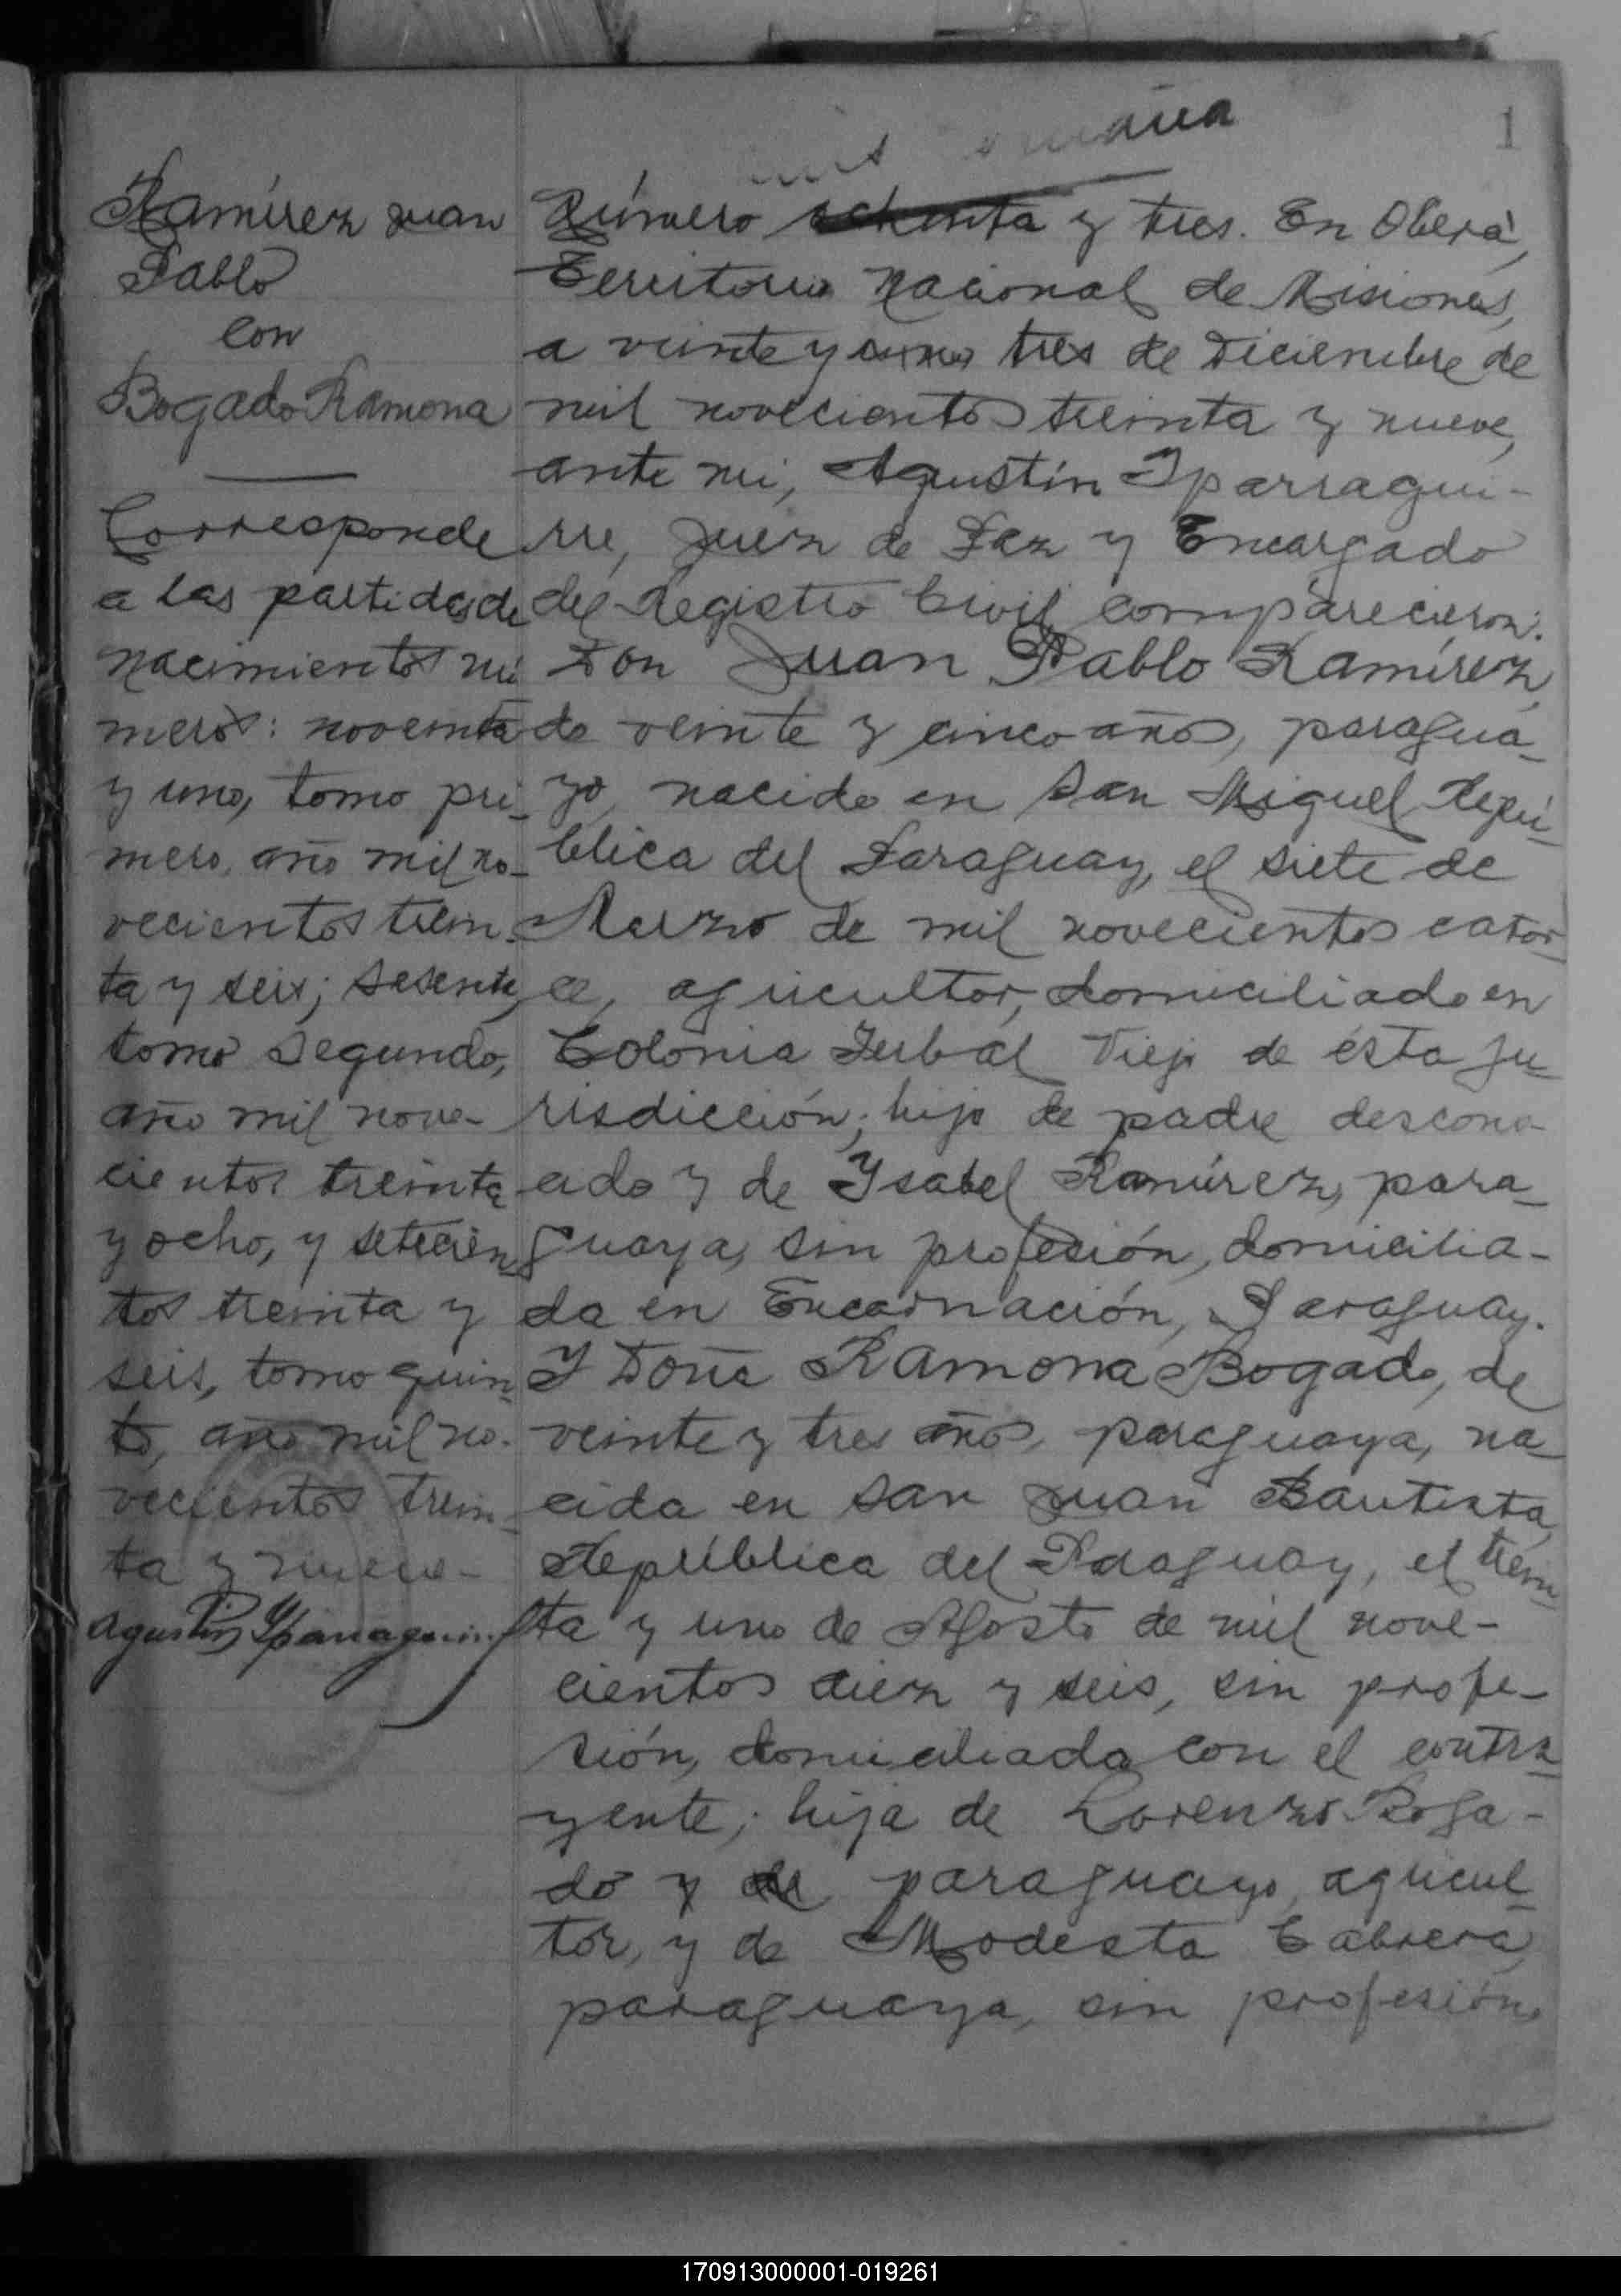 1
Ramírez Juan
Pablo
con
Bogado Ramona
Corresponde
a las partidas de
nacimientos nú
meros: noventa
y uno, tomo pri-
mero, año mil no-
vecientos trein-
ta y seis; sesenta,
tomo segundo,
año mil nove-
cientos treinta
y ocho, y setecien
tos treinta y
seis, tomo quin-
to, año mil no-
vecientos trein-
ta y nueve-
Agustín Yparraguirre
Número ochenta y tres. En Oberá,
Territorio Nacional de Misiones,
a veinte y cinco tres de Diciembre de
mil novecientos treinta y nueve,
ante mi, Agustín Yparragui-
rre, Juez de Paz y Encargado
del Registro Civil comparecieron:
Don Juan Pablo Ramírez,
de veinte y cinco años, paragua-
yo, nacido en San Miguel Repú-
blica del Paraguay, el siete de
Marzo de mil novecientos cator-
ce, agricultor, domiciliado en
Colonia Yerbal Viejo de ésta ju-
risdicción; hijo de padre descono-
cido y de Ysabel Ramírez, para-
guaya, sin profesión, domicilia-
da en Encarnación, Paraguay.
Y Doña Ramona Bogado, de
veinte y tres años, paraguaya, na-
cida en San Juan Bautista,
República del Paraguay, el trein
ta y uno de Agosto de mil nove-
cientos diez y seis, sin profe-
sión, domiciliada con el contra-
yente; hija de Lorenzo Boga-
do y de paraguayo, agricul-
tor, y de Modesta Cabrera,
paraguaya, sin profesión,
170913000001-019261